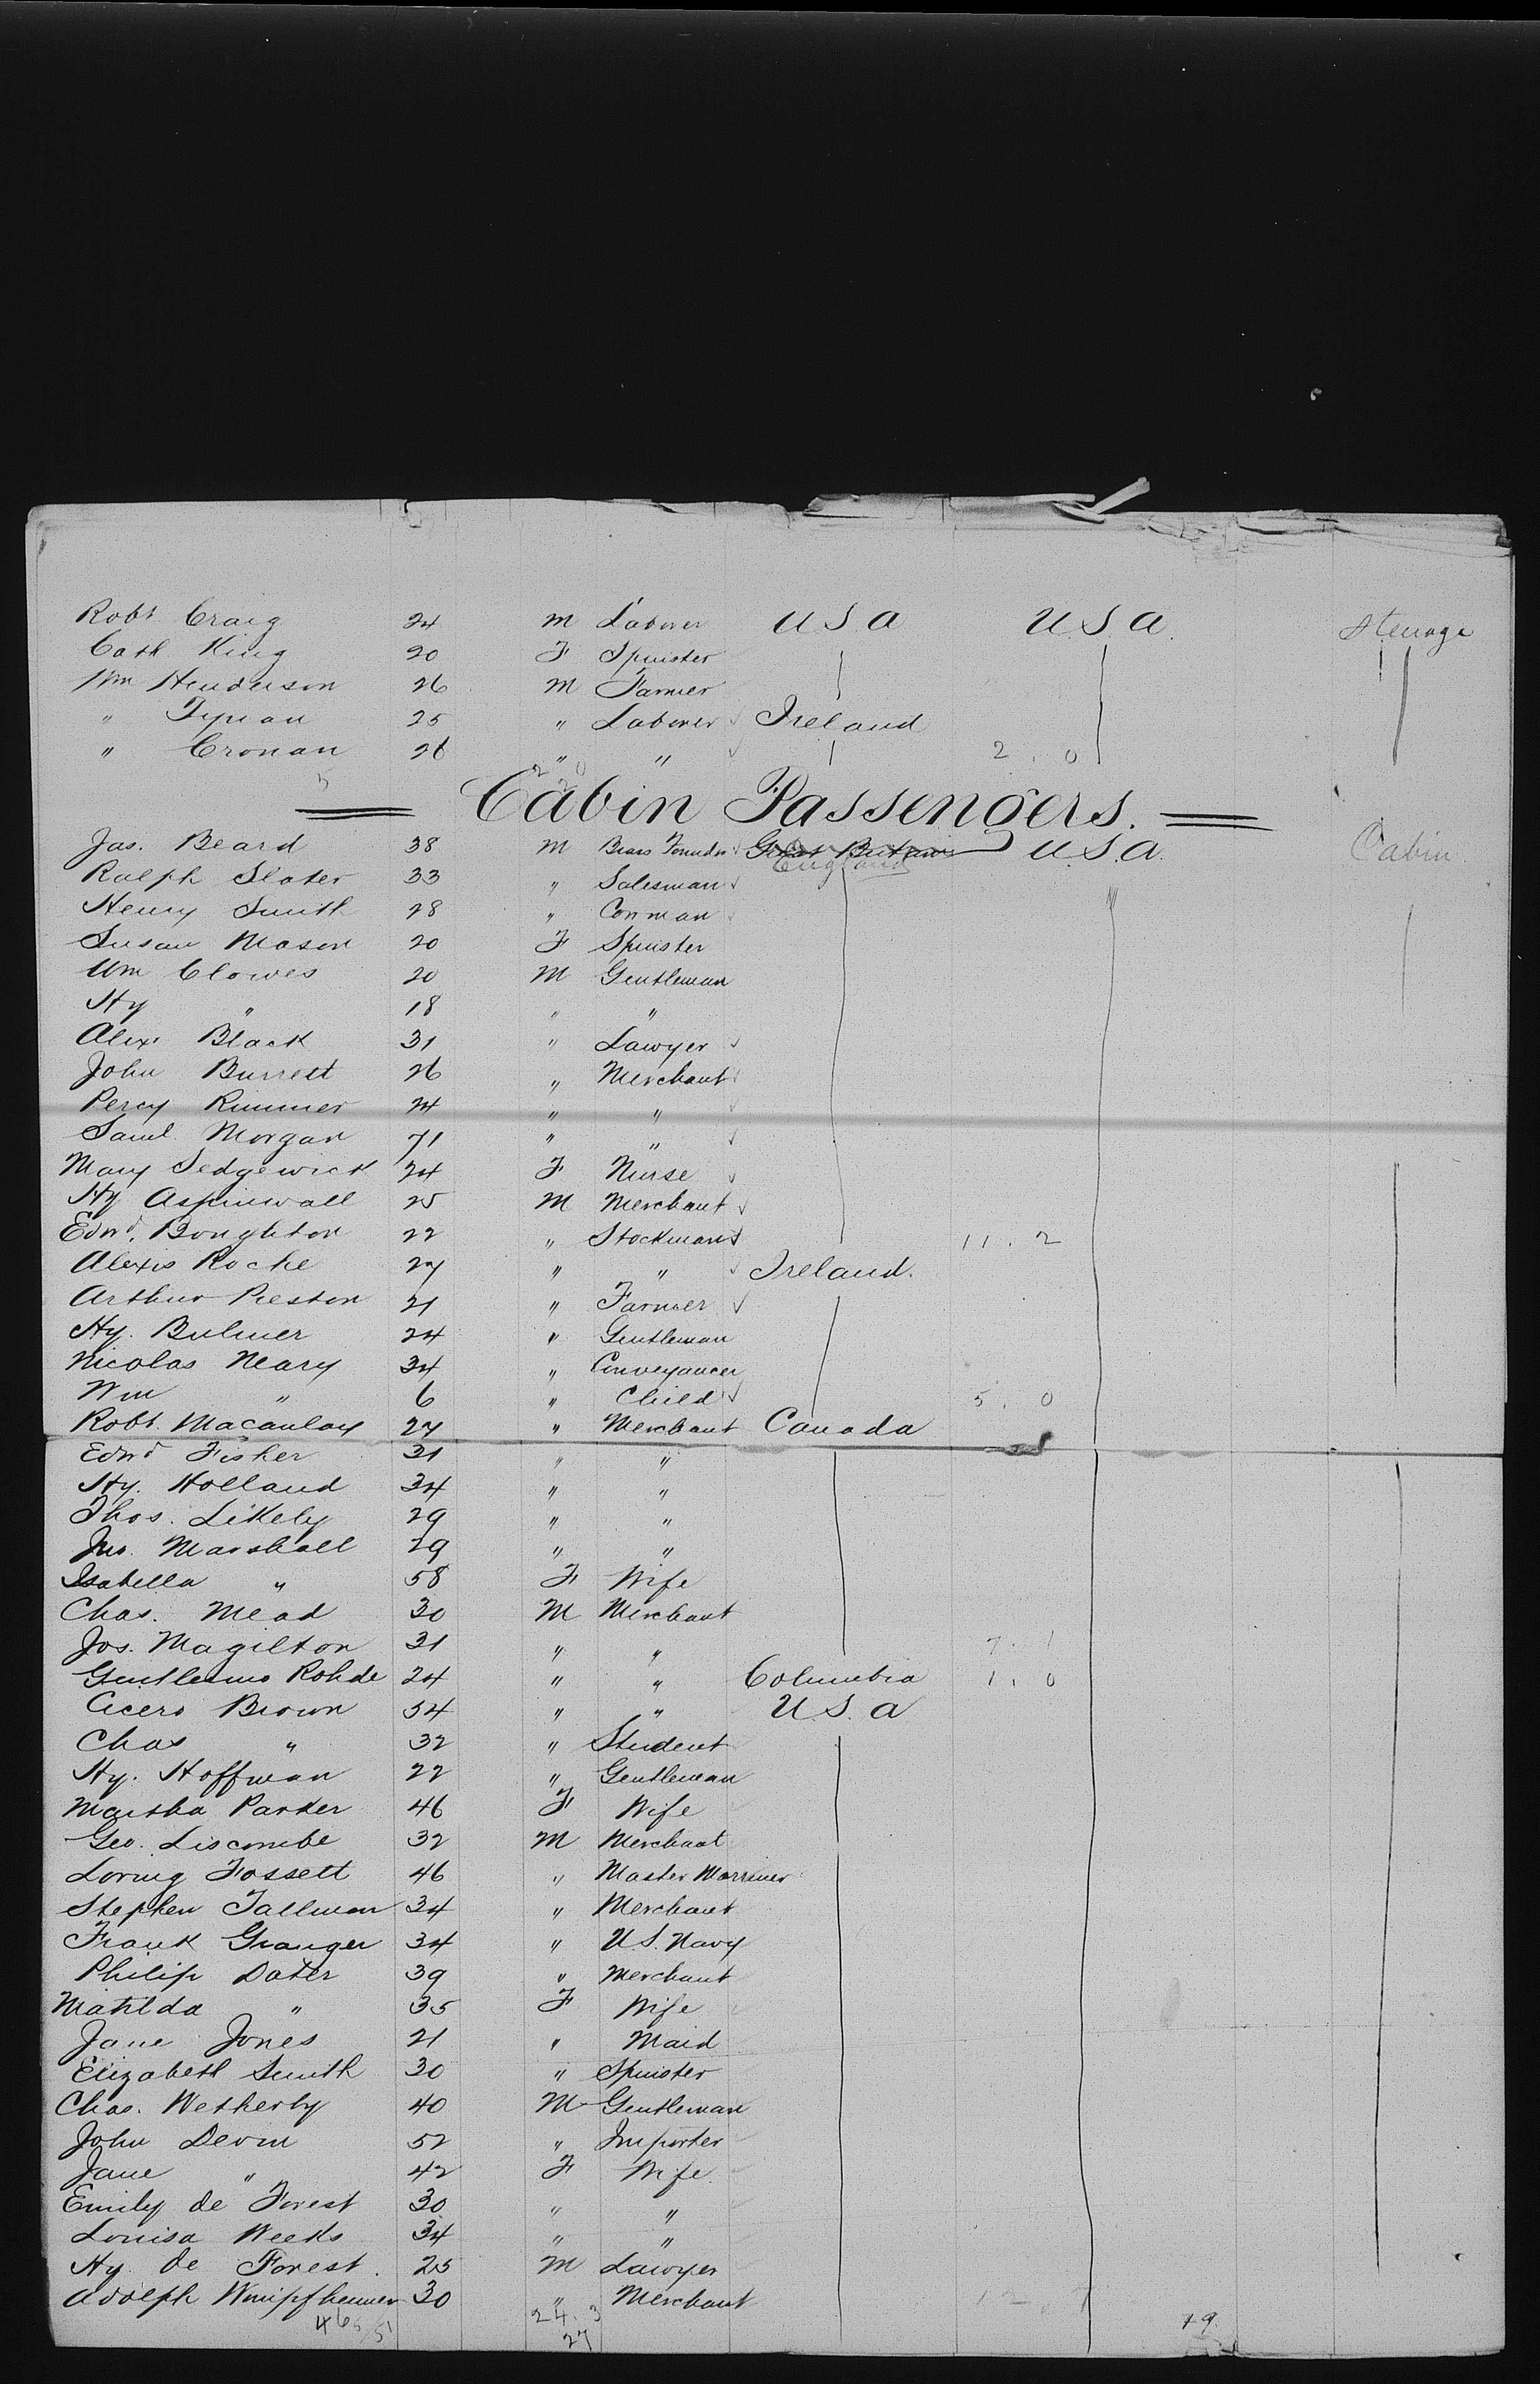 Robt Craig 24 M Laborer U S A U.S.A. Steerage
Cath King 20 F Spinster
Wm Henderson 26 M Farmer
" 25 " Laborer Ireland
" Cronan 26 " " 2 . 0
5 20
Cabin Passengers.
Jas. Beard 38 M Brass Founder Great Britain U.S.A. Cabin
England
Ralph Slater 33 " Salesman
Henry Smith 28 " Conman
Susan Mason 20 F Spinster
Wm Clowes 20 M Gentleman
Hy " 18 " "
Alexr Black 31 " Lawyer
John Burrett 26 " Merchant
Percy Rimmer 24 " "
Saml. Morgan 71 " "
Mary Sedgewick 24 F Nurse
Hy Aspinwall 25 M Merchant
Edwd. Boughton 22 " Stockman 11 . 2
Alexis Roche 27 " " Ireland.
Arthur Preston 21 " Farmer
Hy. Bulmer 24 " Gentleman
Nicolas Neary 34 " Conveyancer
Wm " 6 " Child 5 . 0
Robt. Macaulay 27 " Merchant Canada
Edwd Fisher 31 " "
Hy. Holland 34 " "
Thos. Likely 29 " "
Jno. Marshall 29 " "
Isabella " 58 F Wife
Chas. Mead 30 M Merchant
Jos. Magilton 31 " " 7 . 1
Rohde 24 " " Columbia 1 . 0
Cicero Brown 54 " " U.S.A
Chas " 32 " Student
Hy. Hoffman 22 " Gentleman
Martha Parker 46 F Wife
Geo. Liscombe 32 M Merchant
Loring Fossett 46 " Master Marriner
Stephen Tallman 34 " Merchant
Frank Granger 34 " U.S. Navy
Philip Dater 39 " Merchant
Matilda " 35 F Wife
Jane Jones 21 " Maid
Elizabeth Smith 30 " Spinster
Chas. Wetherby 40 M Gentleman
John Devin 52 " Importer
Jane " 42 F Wife
Emily de Forest 30 " "
Louisa Weeks 34 " "
Hy de Forest. 25 M Lawyer
Adolph Wimpfheimer 30 " Merchant
46 51 24. 3 19
27